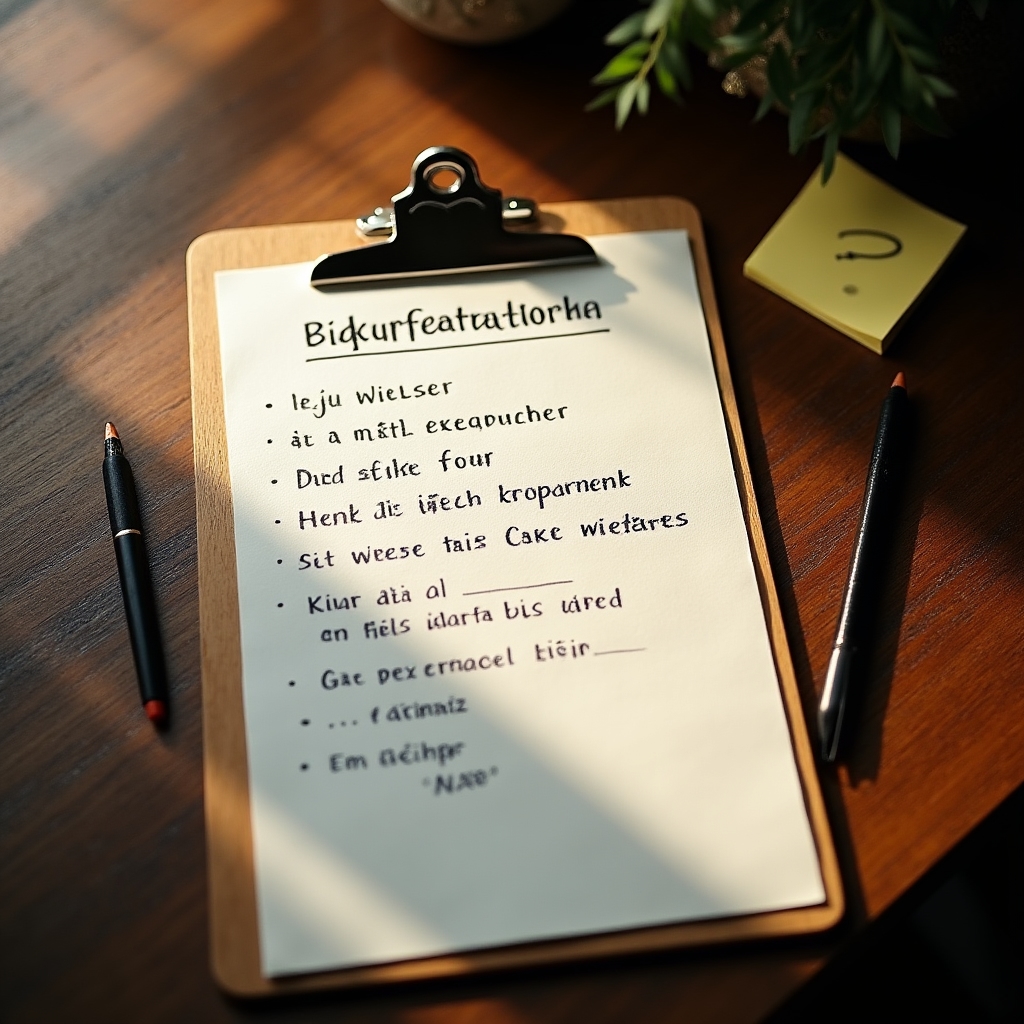 Bidkurfeatratiorha
• le.ju WieLser
• at a mätL exeapucher
• Died sfike four
• Henk die iïech kroparnenk
• Sit weese tais Cake wietares
• Kiur ata al ______
en fiels idarfa bis udred
• Gae pex ernacel tieir____
• ...
• Em
?